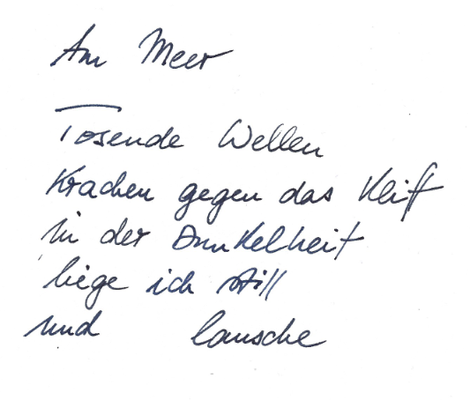 Am Meer
Tosende Wellen
Krachen gegen das Kliff
in der Dunkelheit
liege ich still
und lausche